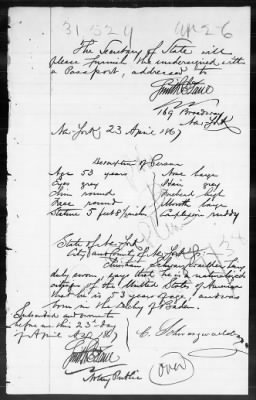 31524 Ap 26
The Secretary of State will
please furnish the undersigned with
a Passport, addressed to
169 Broadway
New York
New York 23 April 1867
Description of Person
Age 53 years Nose large
Eyes grey Hair grey
Chin round Forehead high
Face round Mouth large
Stature 5 feet 8 inch Complexion ruddy
State of New York
City and County of New York
duly sworn, says that he is a naturalized
citizen of the United States of America
that he is 53 years of age, and was
born in the Duchy of Baden
Subscribed and sworn to
before me this 23d day
of April AD 1867
C. Schwarzwaelder
Notary Public
(over)